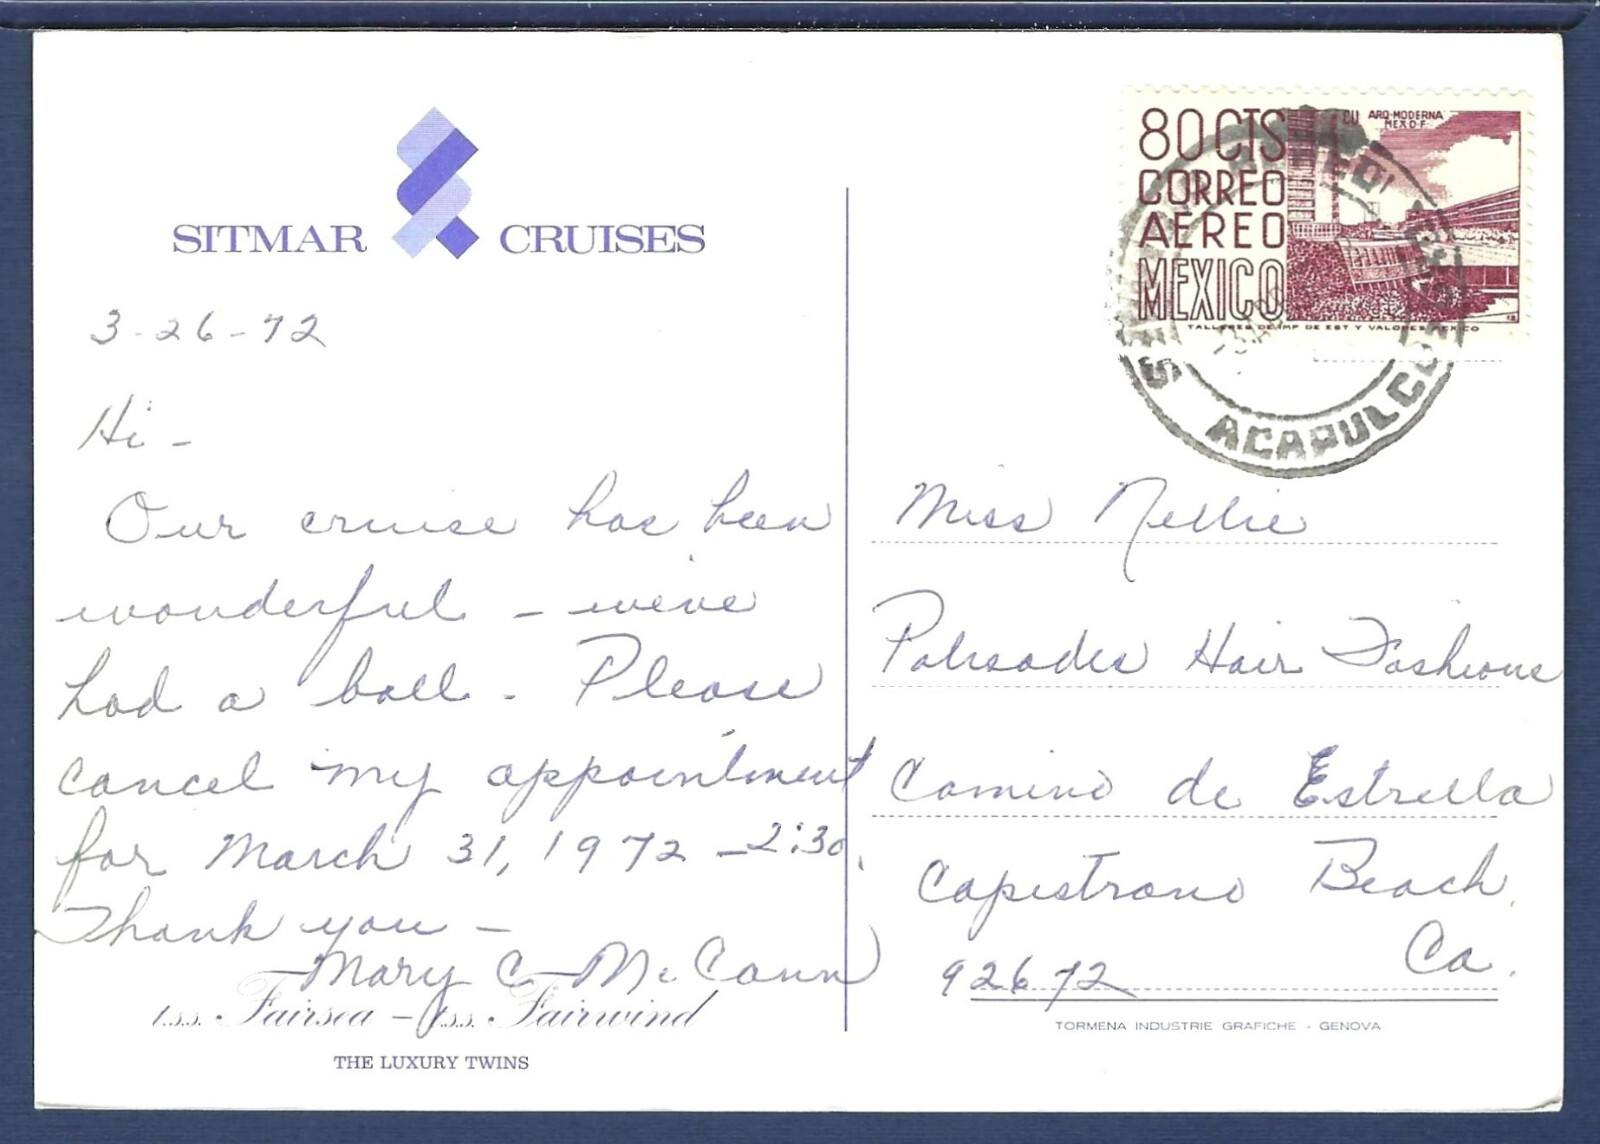 SITMAR CRUISES
3-26-72
Hi -
Our cruise has been
wonderful - we've
had a ball. Please
cancel my appointment
for March 31, 1972 - 2:30.
Thank you -
Mary C McCann
t.s.s. Fairsea - t.s.s. Fairwind
THE LUXURY TWINS
80 CTS
CORREO
AEREO
MEXICO
CU ARQ-MODERNA
MEX D-F
TALLERES DE IMP DE EST Y VALORES MEXICO
ACAPULCO
Miss Nellie
Palisades Hair Fashions
Camino de Estrella
Capistrano Beach,
Ca.
92672
TORMENA INDUSTRIE GRAFICHE - GENOVA